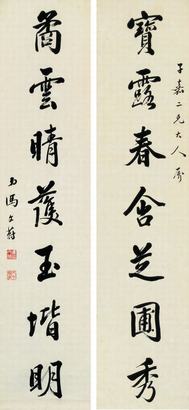 子嘉二兄大人屬
寶露春含芝圃秀
矞雲晴護玉堦明
弟馮文蔚